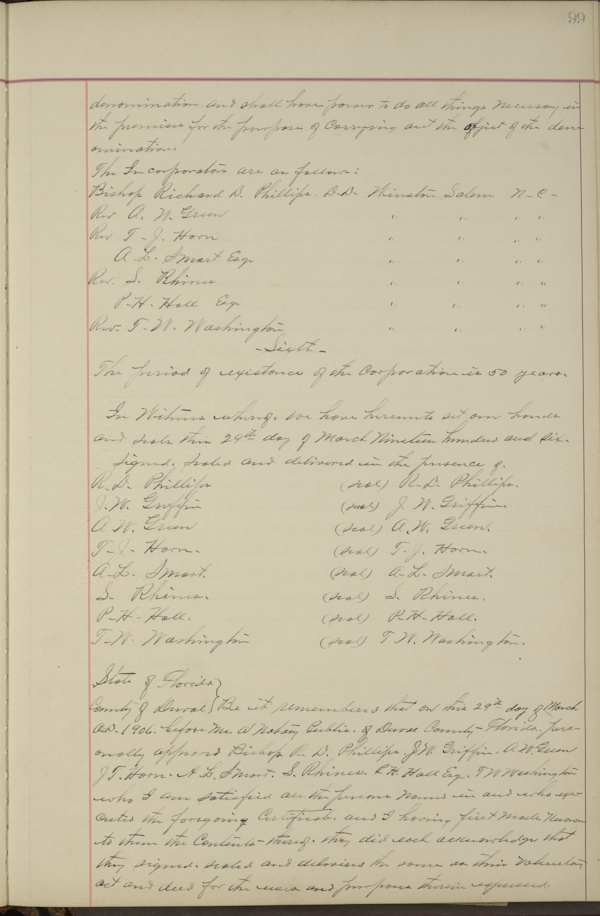 99
denomination and shall have power to do all things necessary in
the premises for the purpose of Carrying out the object of the den-
omination.
The Incorporators are as follows:
Bishop Richard D. Phillips. D.D. Winston Salem N-C-
Rev A. W. Green " " " "
Rev T-J. Horn " " " "
A-L. Smart Esq " " " "
Rev. S. Rhines " " " "
P-H. Hall Esq " " " "
Rev. T-W. Washington " " " "
-Sixth-
The period of existence of the Corporation is 50 years.
In Witness whereof. we have hereunto set our hands
and seals this 29th day of March Nineteen hundred and six-
Signed, sealed and delivered in the presence of.
R.D. Phillips (seal) R-D. Phillips.
J.W. Griffin (seal) J. W. Griffin.
A.W. Green (seal) A.W. Green.
T-J- Horn. (seal) T-J. Horn.
A-L. Smart. (seal) A-L- Smart.
S- Rhines. (seal) S. Rhines.
P-H- Hall. (seal) P-H-Hall.
T-W- Washington (seal) T.W. Washington.
State of Florida }
County of Duval } Be it remembered that on this 29th day of March
A.D. 1906. before me. A Notary Public. of Duval County-Florida. pers-
onally appeared Bishop R. D. Phillips. J.W. Griffin. A.W. Green
J T. Horn. A. L. Smart. S. Rhines. P.H. Hall Esq. T W Washington
who I am satisfied are the persons named in and who exe-
cuted the foregoing Certificate and I having first made known
to them the Contents thereof. they did each acknowledge that
they signed. sealed and delivered the same as their voluntary
act and deed for the uses and purposes therein expressed.